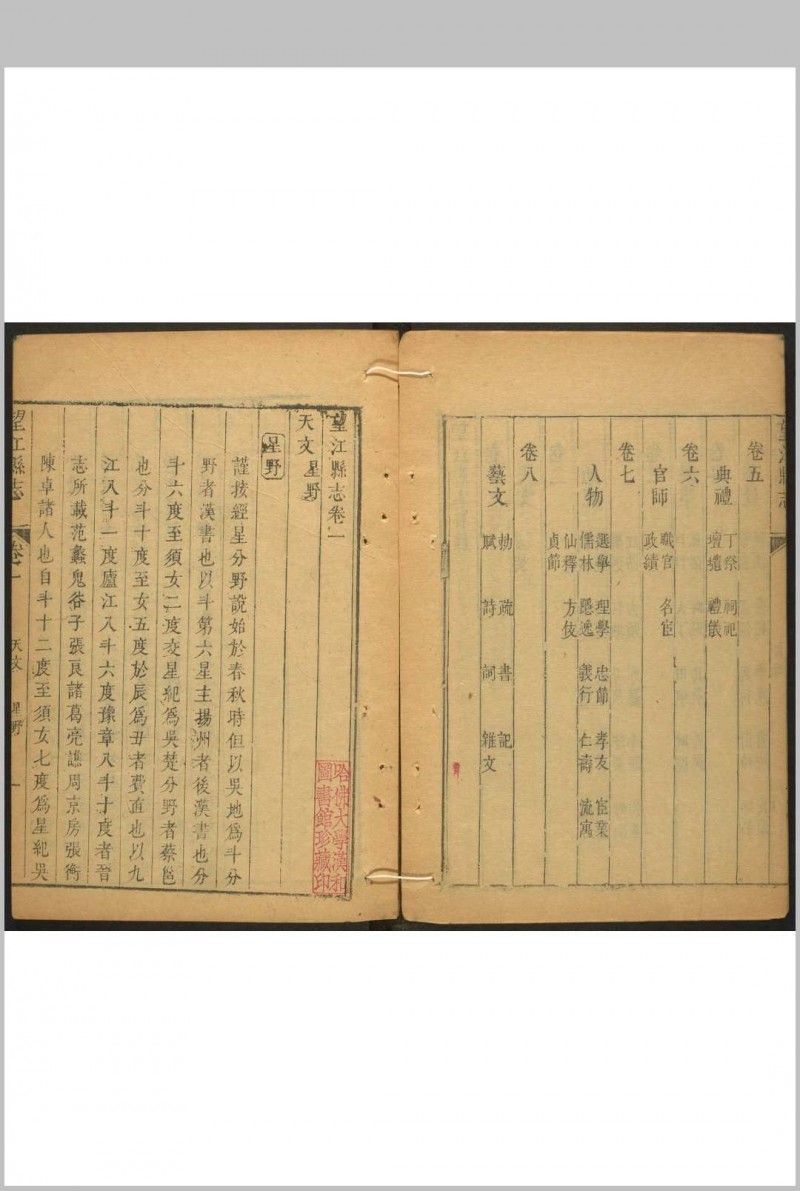 卷五
典禮 丁祭 祠祀
壇壝 禮儀
卷六
官師 職官 名宦
政績
卷七
人物 選舉 理學 忠節 孝友 宦業
儒林 隱逸 義行 仁壽 流寓
仙釋 方伎
貞節
卷八
藝文 勅 疏 書 記
賦 詩 詞 雜文
望江縣志卷一
天文 星野
星野
謹按經星分野說始於春秋時但以吳地爲斗分
野者漢書也以斗第六星主揚州者後漢書也分
斗六度至須女二度交星紀爲吳楚分野者蔡邕
也分斗十度至女五度於辰爲丑者費直也以九
江入斗一度廬江入斗六度豫章入斗十度者晉
志所載范蠡鬼谷子張良諸葛亮譙周京房張衡
陳卓諸人也自斗十二度至須女七度爲星紀吳
望江縣志 卷一 天文 星野 一
哈佛大學漢和
圖書館珍藏印